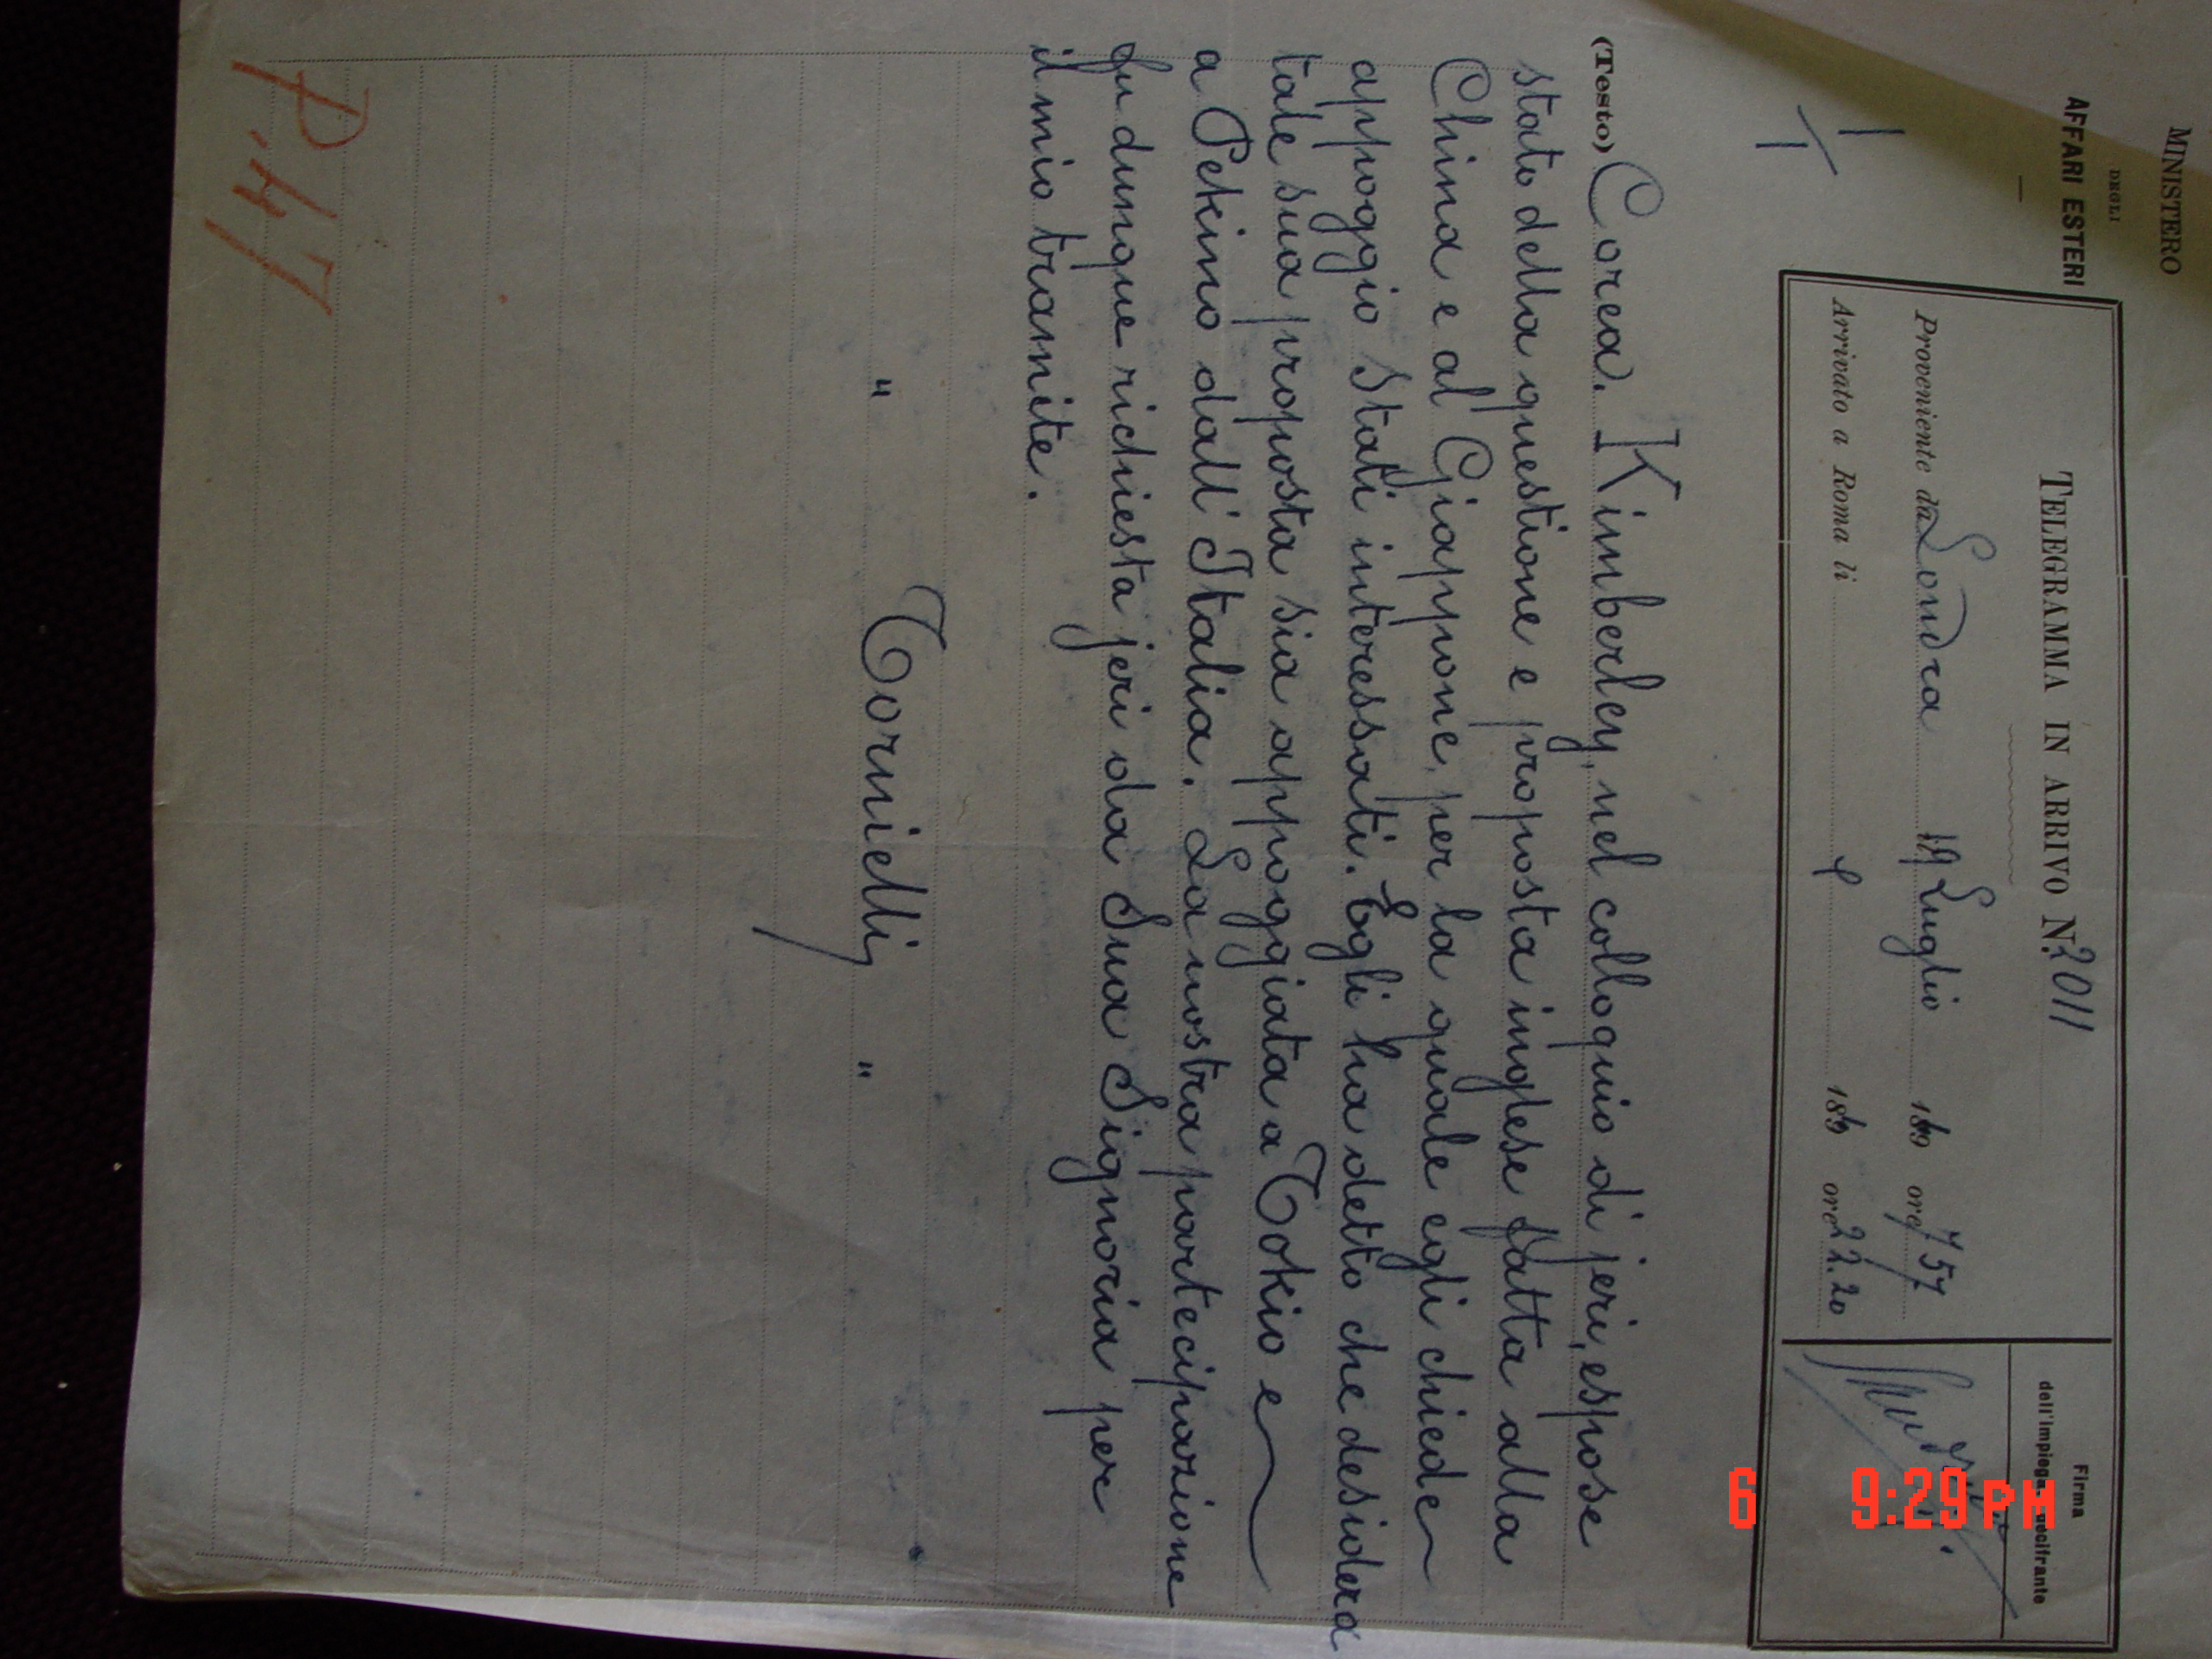 MINISTERO
DEGLI
AFFARI ESTERI
TELEGRAMMA IN ARRIVO N. 2011
Proveniente da Londra 19 Luglio 189 ore 757
Arrivato a Roma li 189 ore 22.20
Firma
dell'impiegato decifrante
(Testo) Corea. Kimberley, nel colloquio di jeri, espose
stato della questione e proposta inglese fatta alla
China e al Giappone, per la quale egli chiede
appoggio Stati interessati. Egli ha detto che desidera
tale sua proposta sia appoggiata a Tokio e
a Pekino dall'Italia. La nostra partecipazione
fu dunque richiesta jeri da Sua Signoria per
il mio tramite.
" Tornielli "
P. 47
6 9:29PM